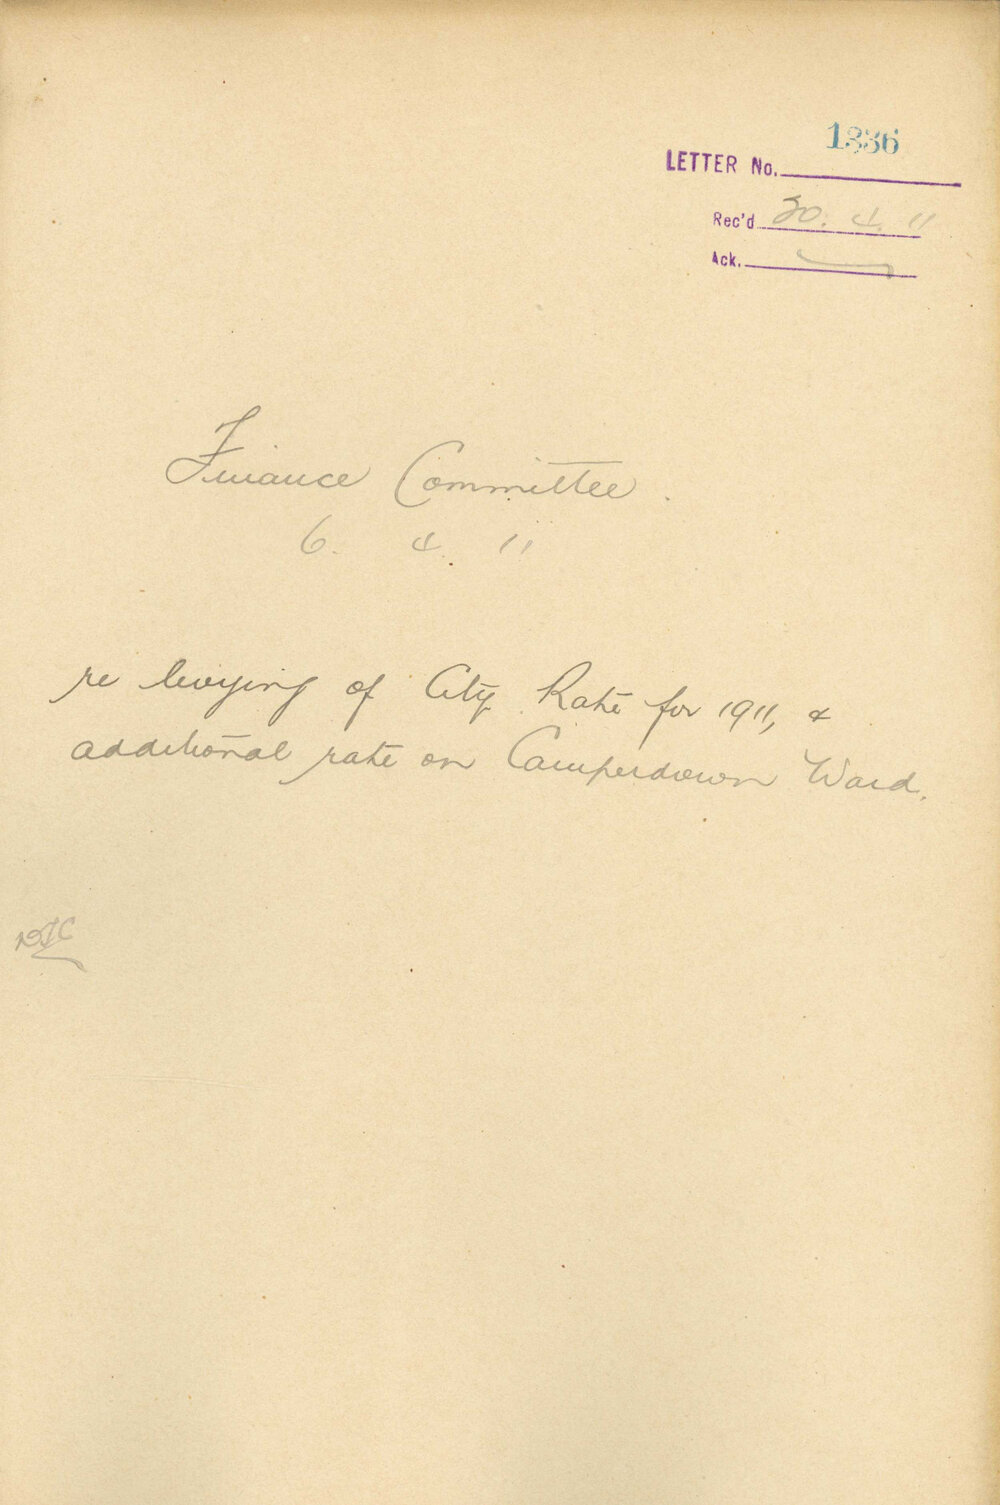 1336
LETTER No.
Rec'd 20. 4. 11
Ack.
Finance Committee.
6. 4. 11
re levying of City Rate for 1911, &
additional rate on Camperdown Ward.